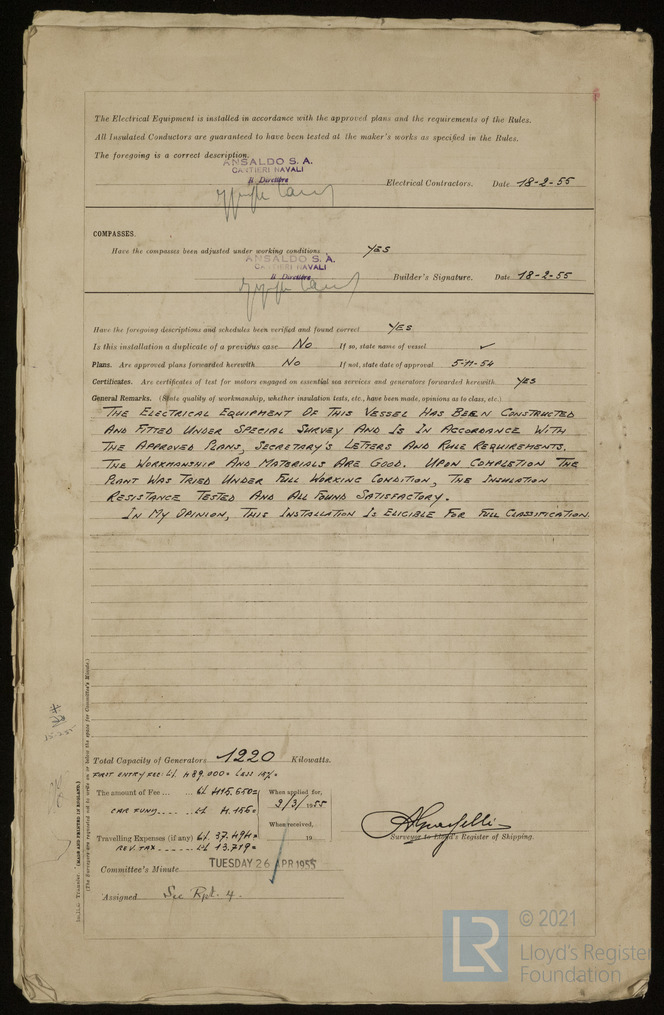 The Electrical Equipment is installed in accordance with the approved plans and the requirements of the Rules.
All Insulated Conductors are guaranteed to have been tested at the maker's works as specified in the Rules.
The foregoing is a correct description.
ANSALDO S. A.
CANTIERI NAVALI
Il Direttore
Electrical Contractors. Date 18-2-55
COMPASSES.
Have the compasses been adjusted under working conditions YES
ANSALDO S. A.
CANTIERI NAVALI
Il Direttore
Builder's Signature. Date 18-2-55
Have the foregoing descriptions and schedules been verified and found correct YES
Is this installation a duplicate of a previous case No If so, state name of vessel ✓
Plans. Are approved plans forwarded herewith No If not, state date of approval 5-11-54
Certificates. Are certificates of test for motors engaged on essential sea services and generators forwarded herewith YES
General Remarks. (State quality of workmanship, whether insulation tests, etc., have been made, opinions as to class, etc.)
THE ELECTRICAL EQUIPMENT OF THIS VESSEL HAS BEEN CONSTRUCTED
AND FITTED UNDER SPECIAL SURVEY AND IS IN ACCORDANCE WITH
THE APPROVED PLANS, SECRETARY'S LETTERS AND RULE REQUIREMENTS.
THE WORKMANSHIP AND MATERIALS ARE GOOD. UPON COMPLETION THE
PLANT WAS TRIED UNDER FULL WORKING CONDITION, THE INSULATION
RESISTANCE TESTED AND ALL FOUND SATISFACTORY.
IN MY OPINION, THIS INSTALLATION IS ELIGIBLE FOR FULL CLASSIFICATION.
Total Capacity of Generators 1220 Kilowatts.
FIRST ENTRY FEE: Lit. 489.000= LESS
The amount of Fee ... ... Lit 415.650= When applied for,
3/3/1955
CAR FUND Lit 4.156=
When received,
Travelling Expenses (if any) Lit 37.494= 19
REV. TAX Lit 13.719=
Surveyor to Lloyd's Register of Shipping.
Committee's Minute TUESDAY 26 APR 1955
Assigned See Rpt. 4.
(MADE AND PRINTED IN ENGLAND.)
(The Surveyors are requested not to write on or below the space for Committee's Minute.)
© 2021
LR
Lloyd's Register
Foundation